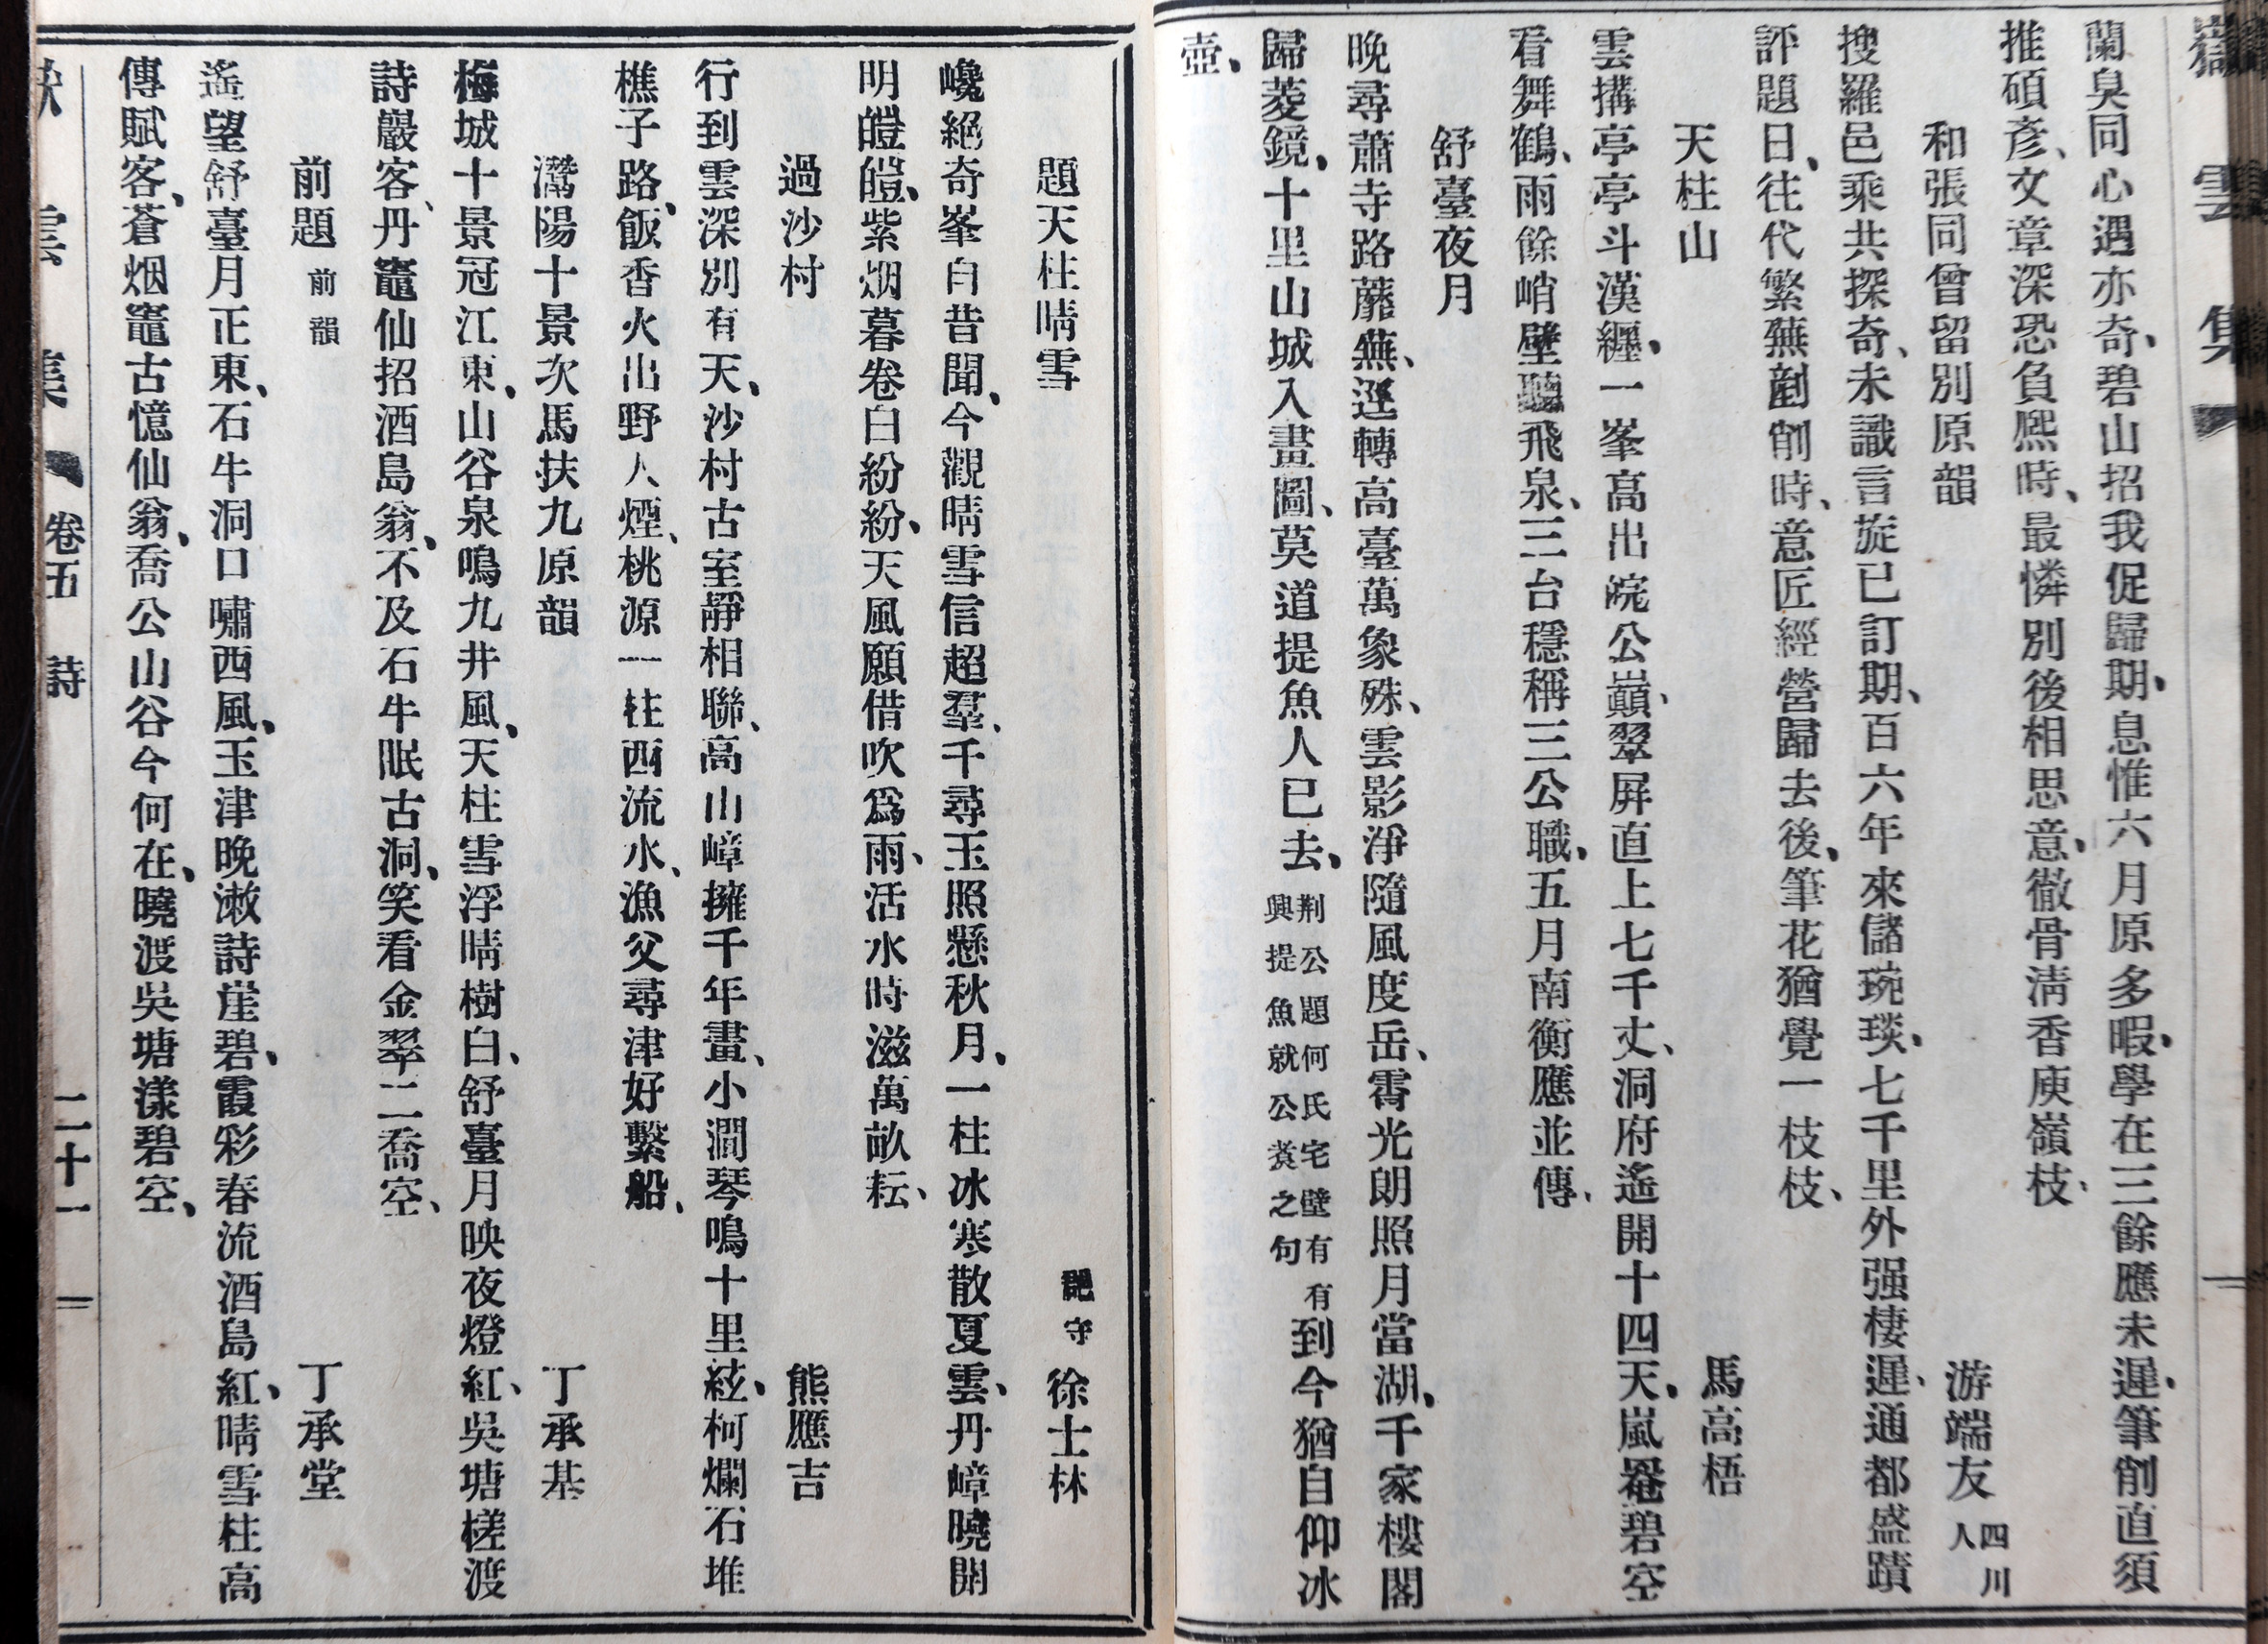 嶽雲集
蘭臭同心遇亦奇、碧山招我促歸期、息惟六月原多暇、學在三餘應未遲、筆削直須
推碩彥、文章深恐負熈時、最憐別後相思意、徹骨淸香庾嶺枝、
和張同曾留別原韻 游端友 四川人
搜羅邑乘共探奇、未識言旋已訂期、百六年來儲琬琰、七千里外强棲遲、通都盛蹟
評題日、往代繁蕪剷削時、意匠經營歸去後、筆花猶覺一枝枝、
天柱山 馬高梧
雲搆亭亭斗漢纒、一峯高出皖公巔、翠屏直上七千丈、洞府遙開十四天、嵐罨碧空
看舞鶴、雨餘峭壁聽飛泉、三台穩稱三公職、五月南衡應並傳、
舒臺夜月
晚尋蕭寺路蘼蕪、逕轉高臺萬象殊、雲影淨隨風度岳、霄光朗照月當湖、千家樓閣
歸菱鏡、十里山城入畫圖、莫道提魚人已去、荆公題何氏宅壁有有興提魚就公煑之句到今猶自仰冰
壺、
題天柱晴雪 郡守 徐士林
巉絕奇峯自昔聞、今觀晴雪信超羣、千尋玉照懸秋月、一柱冰寒散夏雲、丹嶂曉開
明皚皚、紫烟暮卷白紛紛、天風願借吹爲雨、活水時滋萬畝耘、
過沙村 熊應吉
行到雲深別有天、沙村古室靜相聯、高山嶂擁千年畫、小澗琴鳴十里絃、柯爛石堆
樵子路、飯香火出野人煙、桃源一柱西流水、漁父尋津好繫船、
灊陽十景次馬扶九原韻 丁承基
梅城十景冠江東、山谷泉鳴九井風、天柱雪浮晴樹白、舒臺月映夜燈紅、吳塘槎渡
詩巖客、丹竈仙招酒島翁、不及石牛眠古洞、笑看金翠二喬空、
前題 前韻 丁承堂
遙望舒臺月正東、石牛洞口嘯西風、玉津晚漱詩崖碧、霞彩春流酒島紅、晴雪柱高
傳賦客、蒼烟竈古憶仙翁、喬公山谷今何在、曉渡吳塘漾碧空、
雲集 卷五 詩 二十一